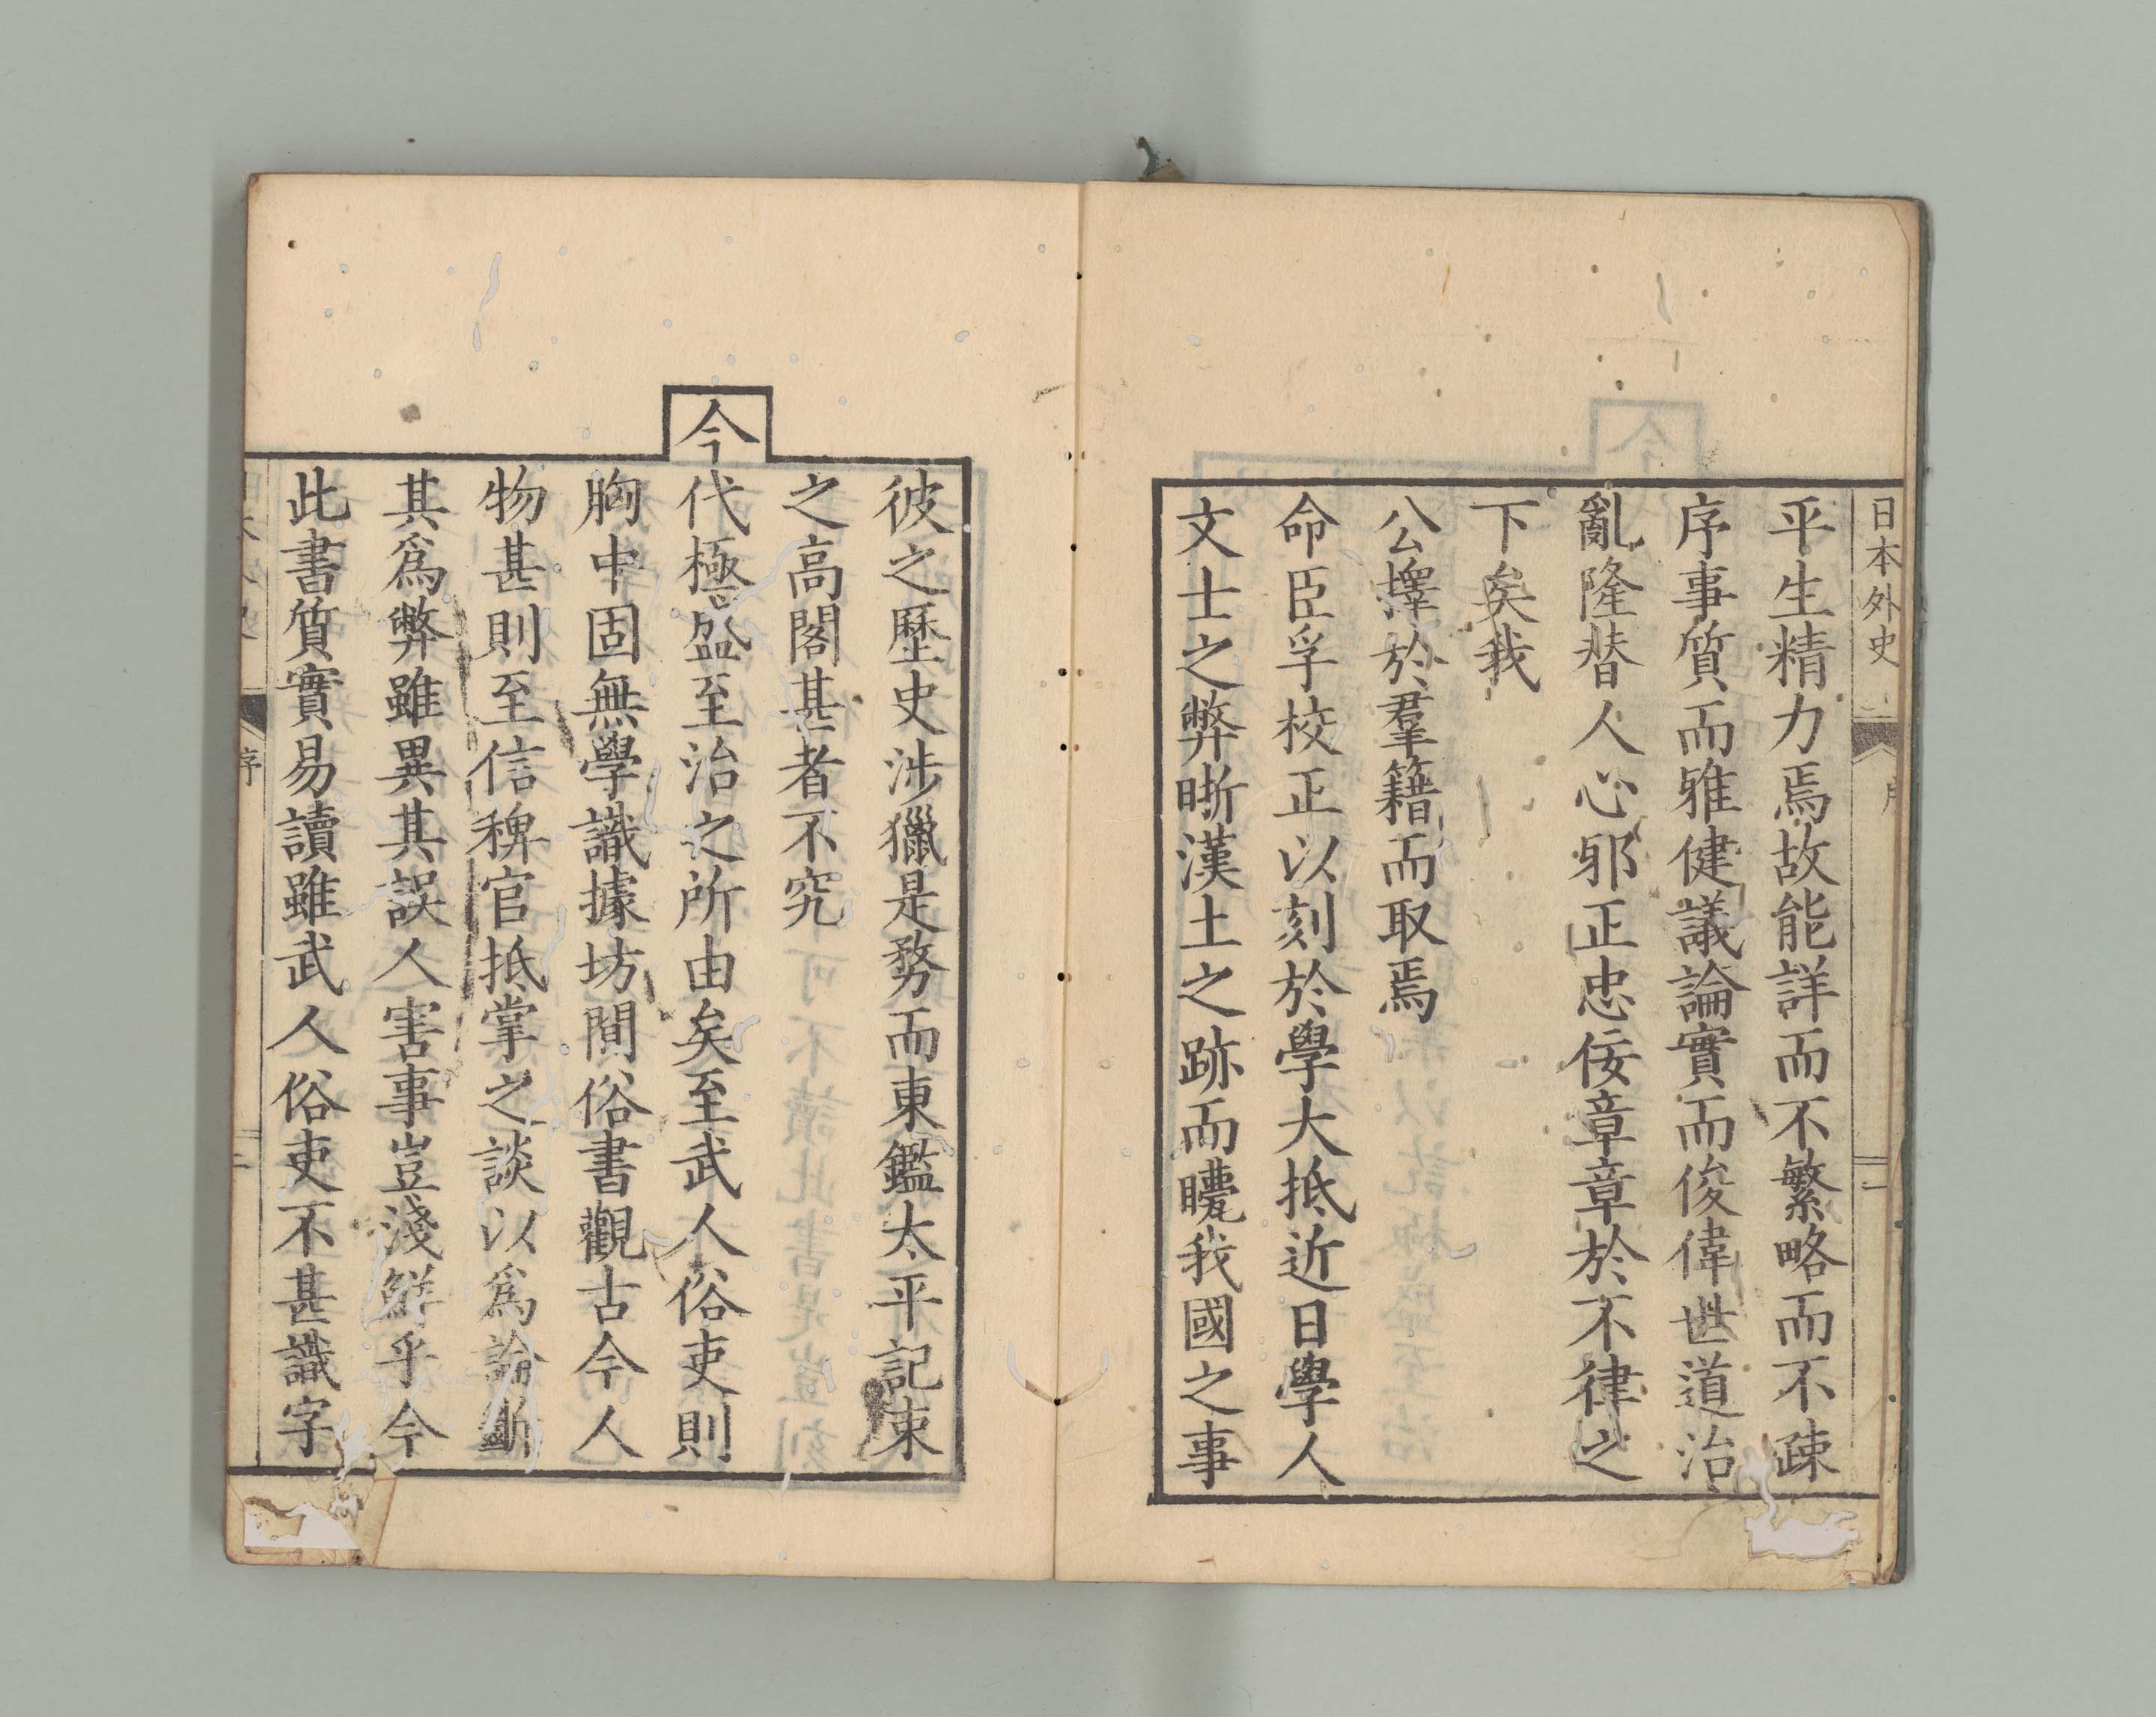 日本外史
平生精力焉故能詳而不繁略而不疎
序事質而雅健議論實而俊偉世道治
亂隆替人心邪正忠佞章章於不律之
下矣我
公擇於羣籍而取焉
命臣孚校正以刻於學大抵近日學人
文士之弊晣漢土之跡而矒我國之事
彼之歷史涉獵是務而東鑑太平記束
之高閣甚者不究
今代極盛至治之所由矣至武人俗吏則
胸中固無學識據坊間俗書觀古今人
物甚則至信稗官抵掌之談以爲論斷
其爲弊雖異其誤人害事豈淺鮮乎今
此書質實易讀雖武人俗吏不甚識字
序